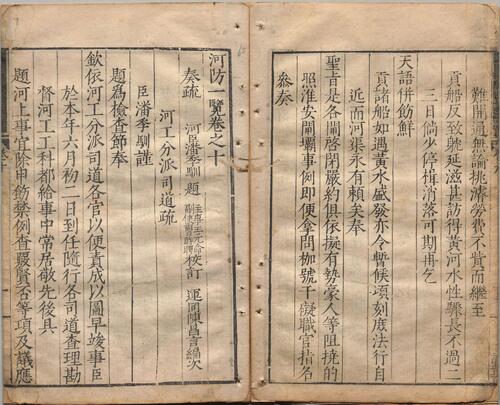 難開通無論挑濬勞費不貲而繼至
貢船反致耽延滋甚訪得黃河水性驟長不過二
三日倘少停橈消落可期再乞
天語併飭鮮
貢諸船如遇黃水盛發亦令暫候頃刻庶法行自
近而河渠永有賴矣奉
聖旨是各閘啓閉嚴約俱依擬有勢豪人等阻撓的
照淮安閘壩事例即便拿問枷號干礙職官指名
叅奏
河防一覽卷之十
奏疏 河臣潘季馴題 校訂 運同陳昌言編次
河工分派司道疏
臣潘季馴謹
題為檢查節奉
欽依河工分派司道各官以便責成以圖早竣事臣
於本年六月初二日到任隨行各司道查理勘
督河工工科都給事中常居敬先後具
題河上事宜除申飭禁例查覈賢否等項及議應